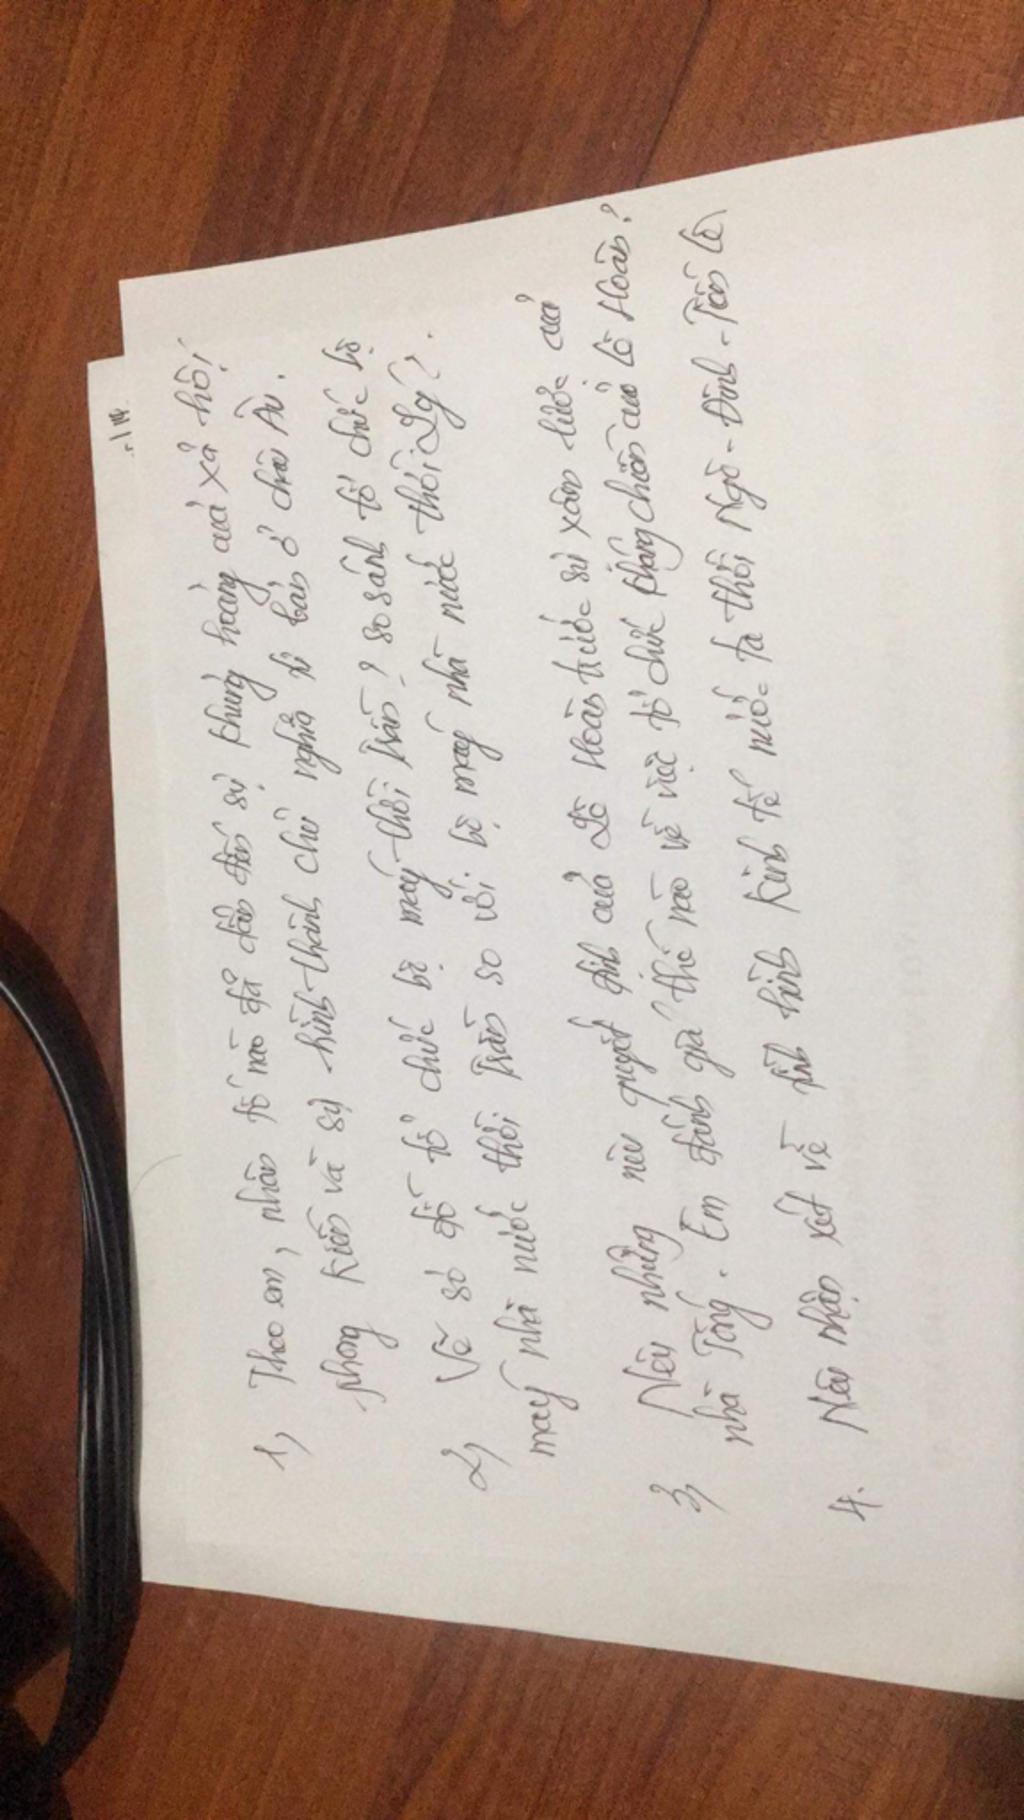 1, Theo em, nhân tố nào đã dẫn đến sự khủng hoảng của xã hội
phong kiến và sự hình thành chủ nghĩa tư bản ở châu Âu.
2, Vẽ sơ đồ tổ chức bộ máy thời Trần? So sánh tổ chức bộ
máy nhà nước thời Trần so với bộ máy nhà nước thời Lý?.
3, Nêu những quyết định của Lê Hoàn trước sự xâm lược của
nhà Tống. Em đánh giá thế nào về việc tổ chức kháng chiến của Lê Hoàn?
4. Nêu nhận xét về tình hình kinh tế nước ta thời Ngô - Đinh - Tiền Lê